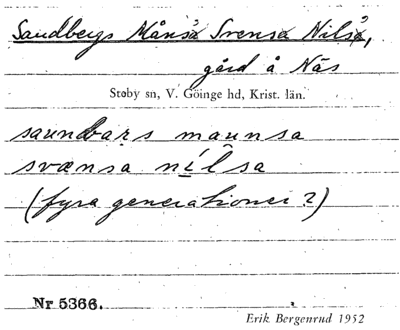 Sandbergs Måns's Svensa Nils's,
gård å Näs
Stoby sn, V. Göinge hd, Krist. län.
saunbars maunsa
svænsa nílsa
(fyra generationer?)
Nr 5366.
Erik Bergenrud 1952